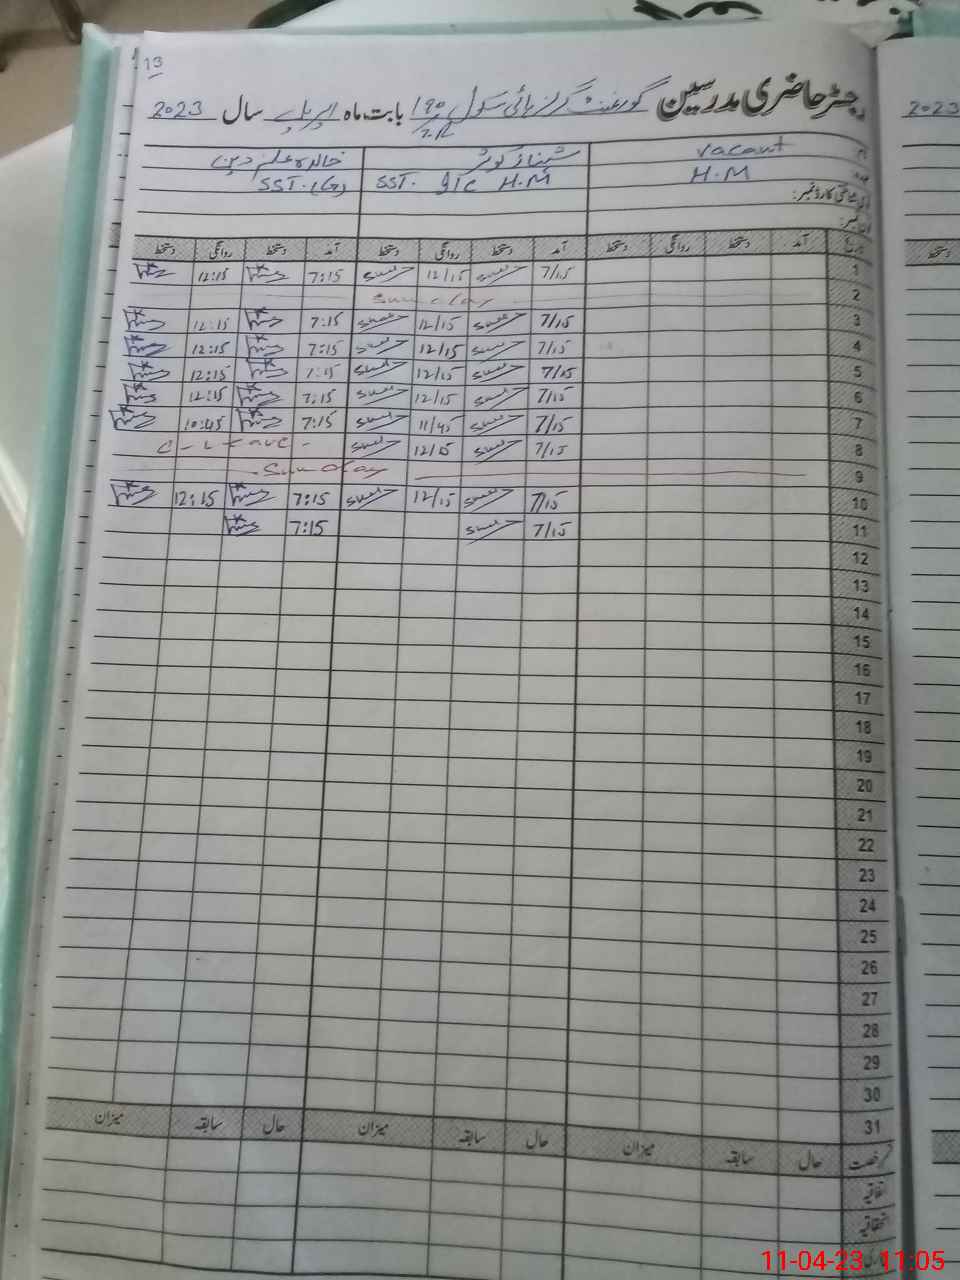 13
رجسٹر حاضری مدرسین گورنمنٹ گرلز ہائی سکول 190/7.R بابت ماہ اپریل سال 2023
2023
vacant شہناز کوثر خالدہ علم دین
H.M SST. I/C H.M SST.(G)
شناختی کارڈ نمبر:
آمد دستخط روانگی دستخط آمد دستخط روانگی دستخط آمد دستخط روانگی دستخط
دستخط
1 7/15 12/15 7:15 12:15
2 Sunday
3 7/15 12/15 7:15 12:15
4 7/15 12/15 7:15 12:15
5 7/15 12/15 7:15 12:15
6 7/15 12/15 7:15 12:15
7 7/15 11/45 7:15 10:45
8 7/15 12/15 C-Leave
9 Sunday
10 7/15 12/15 7:15 12:15
11 7/15 7:15
12
13
14
15
16
17
18
19
20
21
22
23
24
25
26
27
28
29
30
31
رخصت حال سابقہ میزان حال سابقہ میزان حال سابقہ میزان
اتفاقیہ
استحقاقیہ
11-04-23 11:05